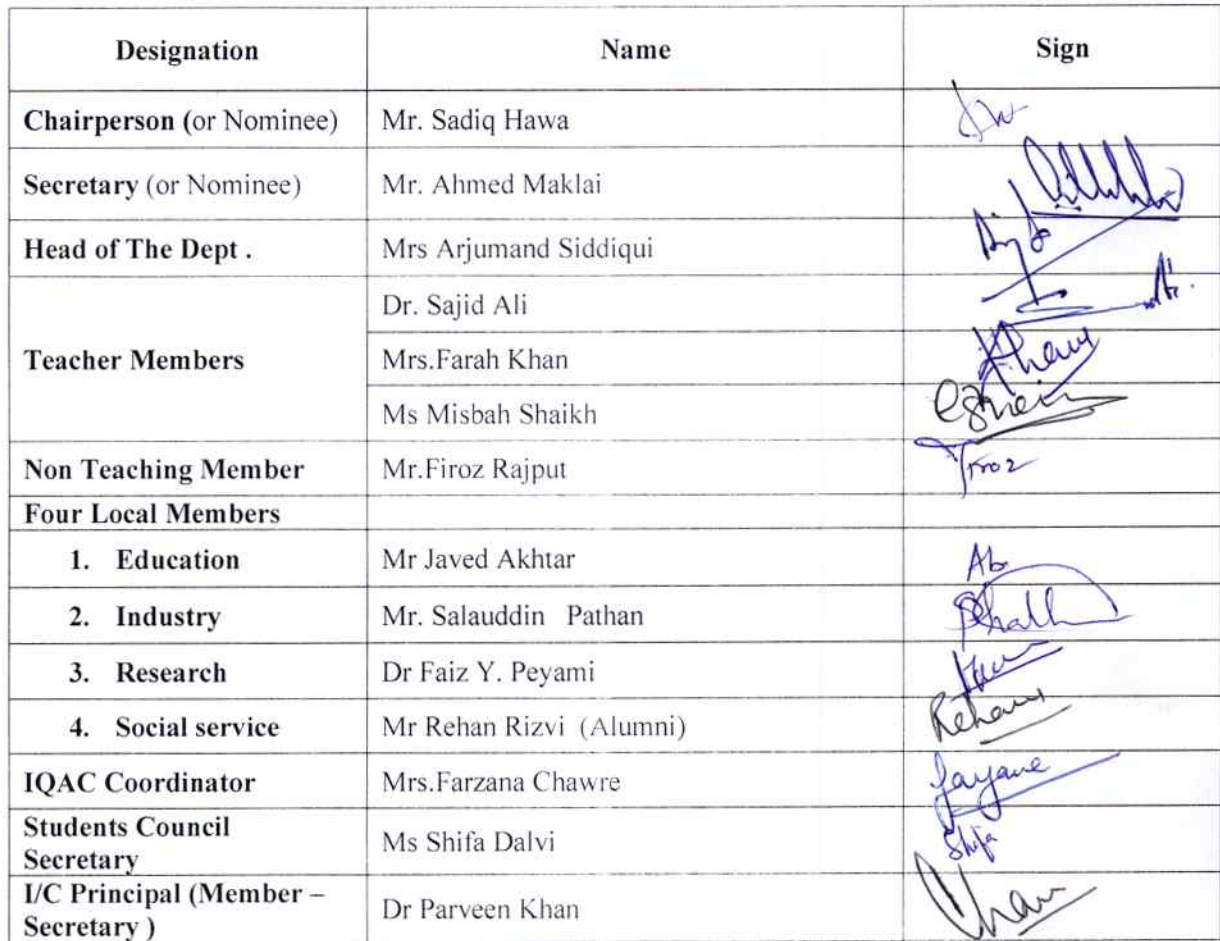 Designation Name Sign
Chairperson (or Nominee) Mr. Sadiq Hawa
Secretary (or Nominee) Mr. Ahmed Maklai
Head of The Dept . Mrs Arjumand Siddiqui
Dr. Sajid Ali
Teacher Members Mrs.Farah Khan
Ms Misbah Shaikh
Non Teaching Member Mr.Firoz Rajput Firoz
Four Local Members
1. Education Mr Javed Akhtar Ab
2. Industry Mr. Salauddin Pathan
3. Research Dr Faiz Y. Peyami
4. Social service Mr Rehan Rizvi (Alumni) Rehan
IQAC Coordinator Mrs.Farzana Chawre
Students Council
Secretary Ms Shifa Dalvi Shifa
I/C Principal (Member –
Secretary ) Dr Parveen Khan